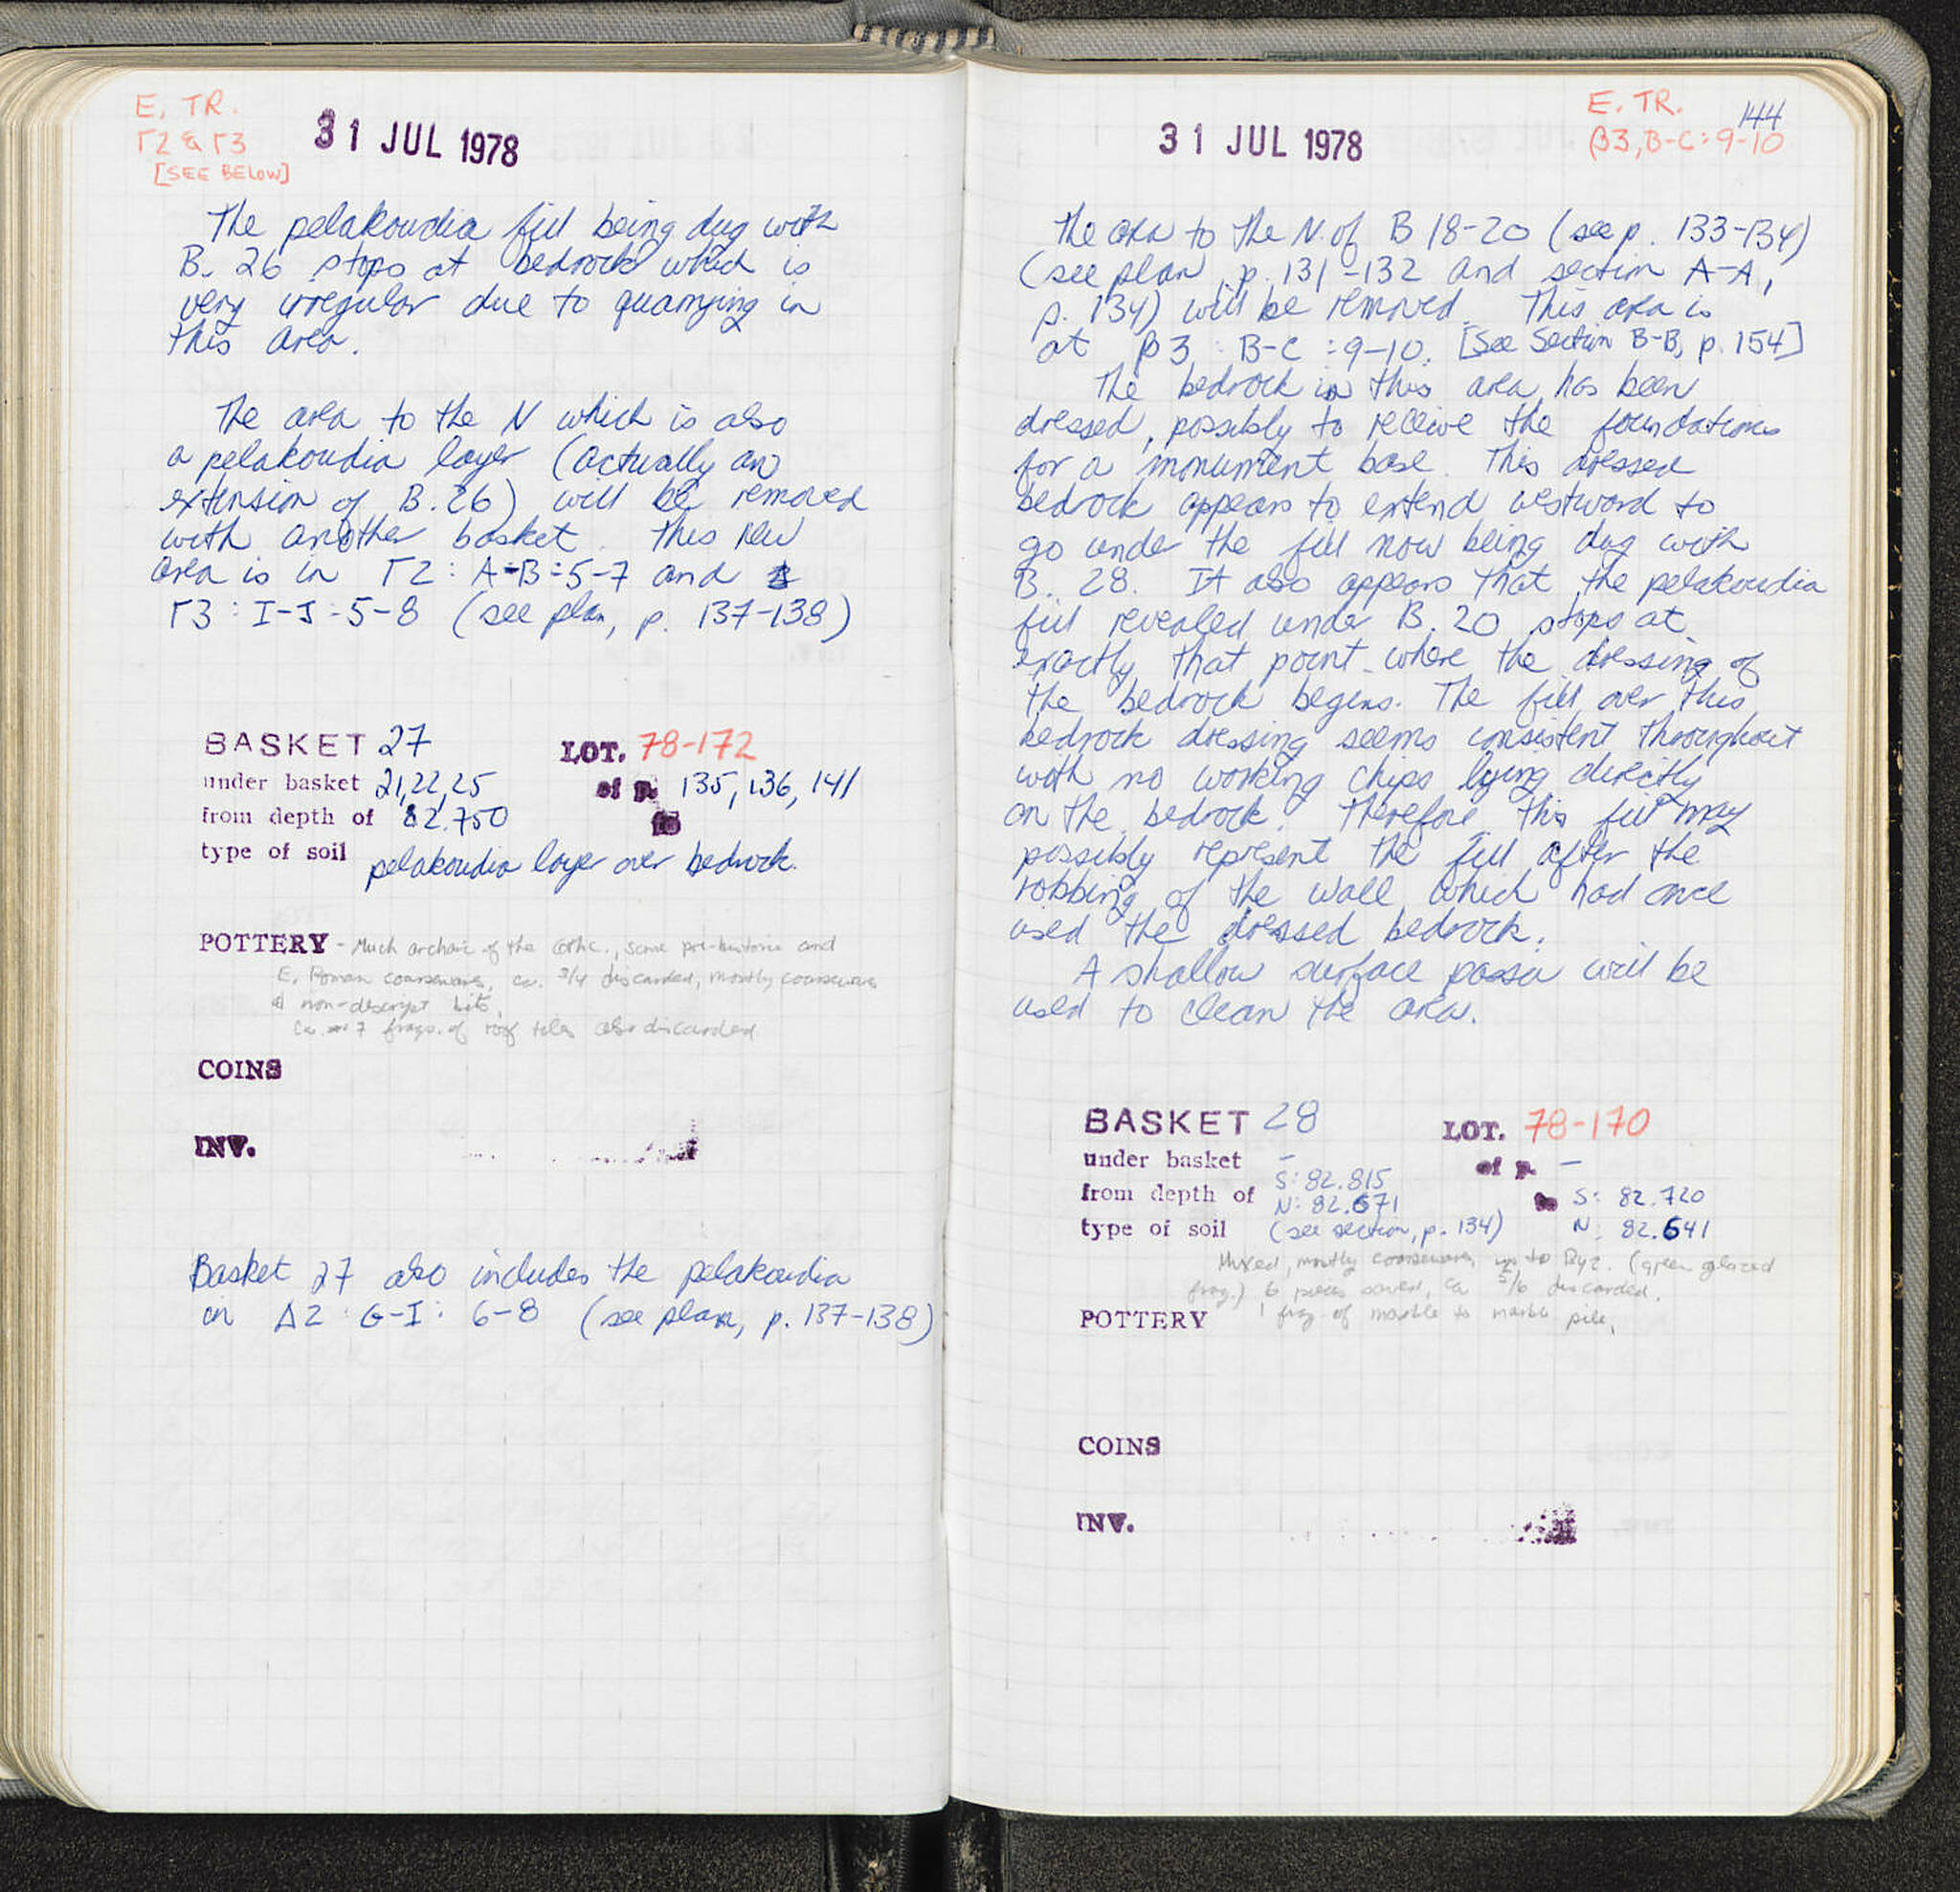 E. TR.
Γ2 & Γ3
[SEE BELOW]
31 JUL 1978
The pelakoudia fill being dug with
B. 26 stops at bedrock which is
very irregular due to quarrying in
this area.
The area to the N which is also
a pelakoudia layer (actually an
extension of B. 26) will be removed
with another basket. This new
area is in Γ2 : A-B : 5-7 and
Γ3 : I-J : 5-8 (see plan, p. 137-138)
BASKET 27 LOT. 78-172
under basket 21,22,25 of p. 135, 136, 141
from depth of 82.750 to
type of soil pelakoudia layer over bedrock.
POTTERY - Much archaic of the Gothic., some pre-historic and
E. Roman coarsewares, ca. 3/4 discarded, mostly coarsewares
& non-descript bits,
Ca. 7 frags. of roof tiles also discarded
COINS
INV.
Basket 27 also includes the pelakoudia
in Δ2 : G-I : 6-8 (see plan, p. 137-138)
E. TR. 144
β3, B-C : 9-10
31 JUL 1978
The area to the N. of B 18-20 (see p. 133-134)
(see plan, p. 131-132 and section A-A,
p. 134) will be removed. This area is
at β3 : B-C : 9-10. [See Section B-B, p. 154]
The bedrock in this area has been
dressed, possibly to receive the foundations
for a monument base. This dressed
bedrock appears to extend westward to
go under the fill now being dug with
B. 28. It also appears that the pelakoudia
fill revealed under B. 20 stops at
exactly that point where the dressing of
the bedrock begins. The fill over this
bedrock dressing seems consistent throughout
with no working chips lying directly
on the bedrock. Therefore this fill may
possibly represent the fill after the
robbing of the wall which had once
used the dressed bedrock.
A shallow surface passa will be
used to clean the area.
BASKET 28 LOT. 78-170
under basket - of p. -
from depth of S: 82.815 N: 82.671 to S: 82.720
type of soil (see section, p. 134) N: 82.641
Mixed, mostly coarseware, up to Byz. (green glazed
frag.) 6 pieces saved, ca 5/6 discarded.
POTTERY 1 frag. of marble to marble pile,
COINS
INV.